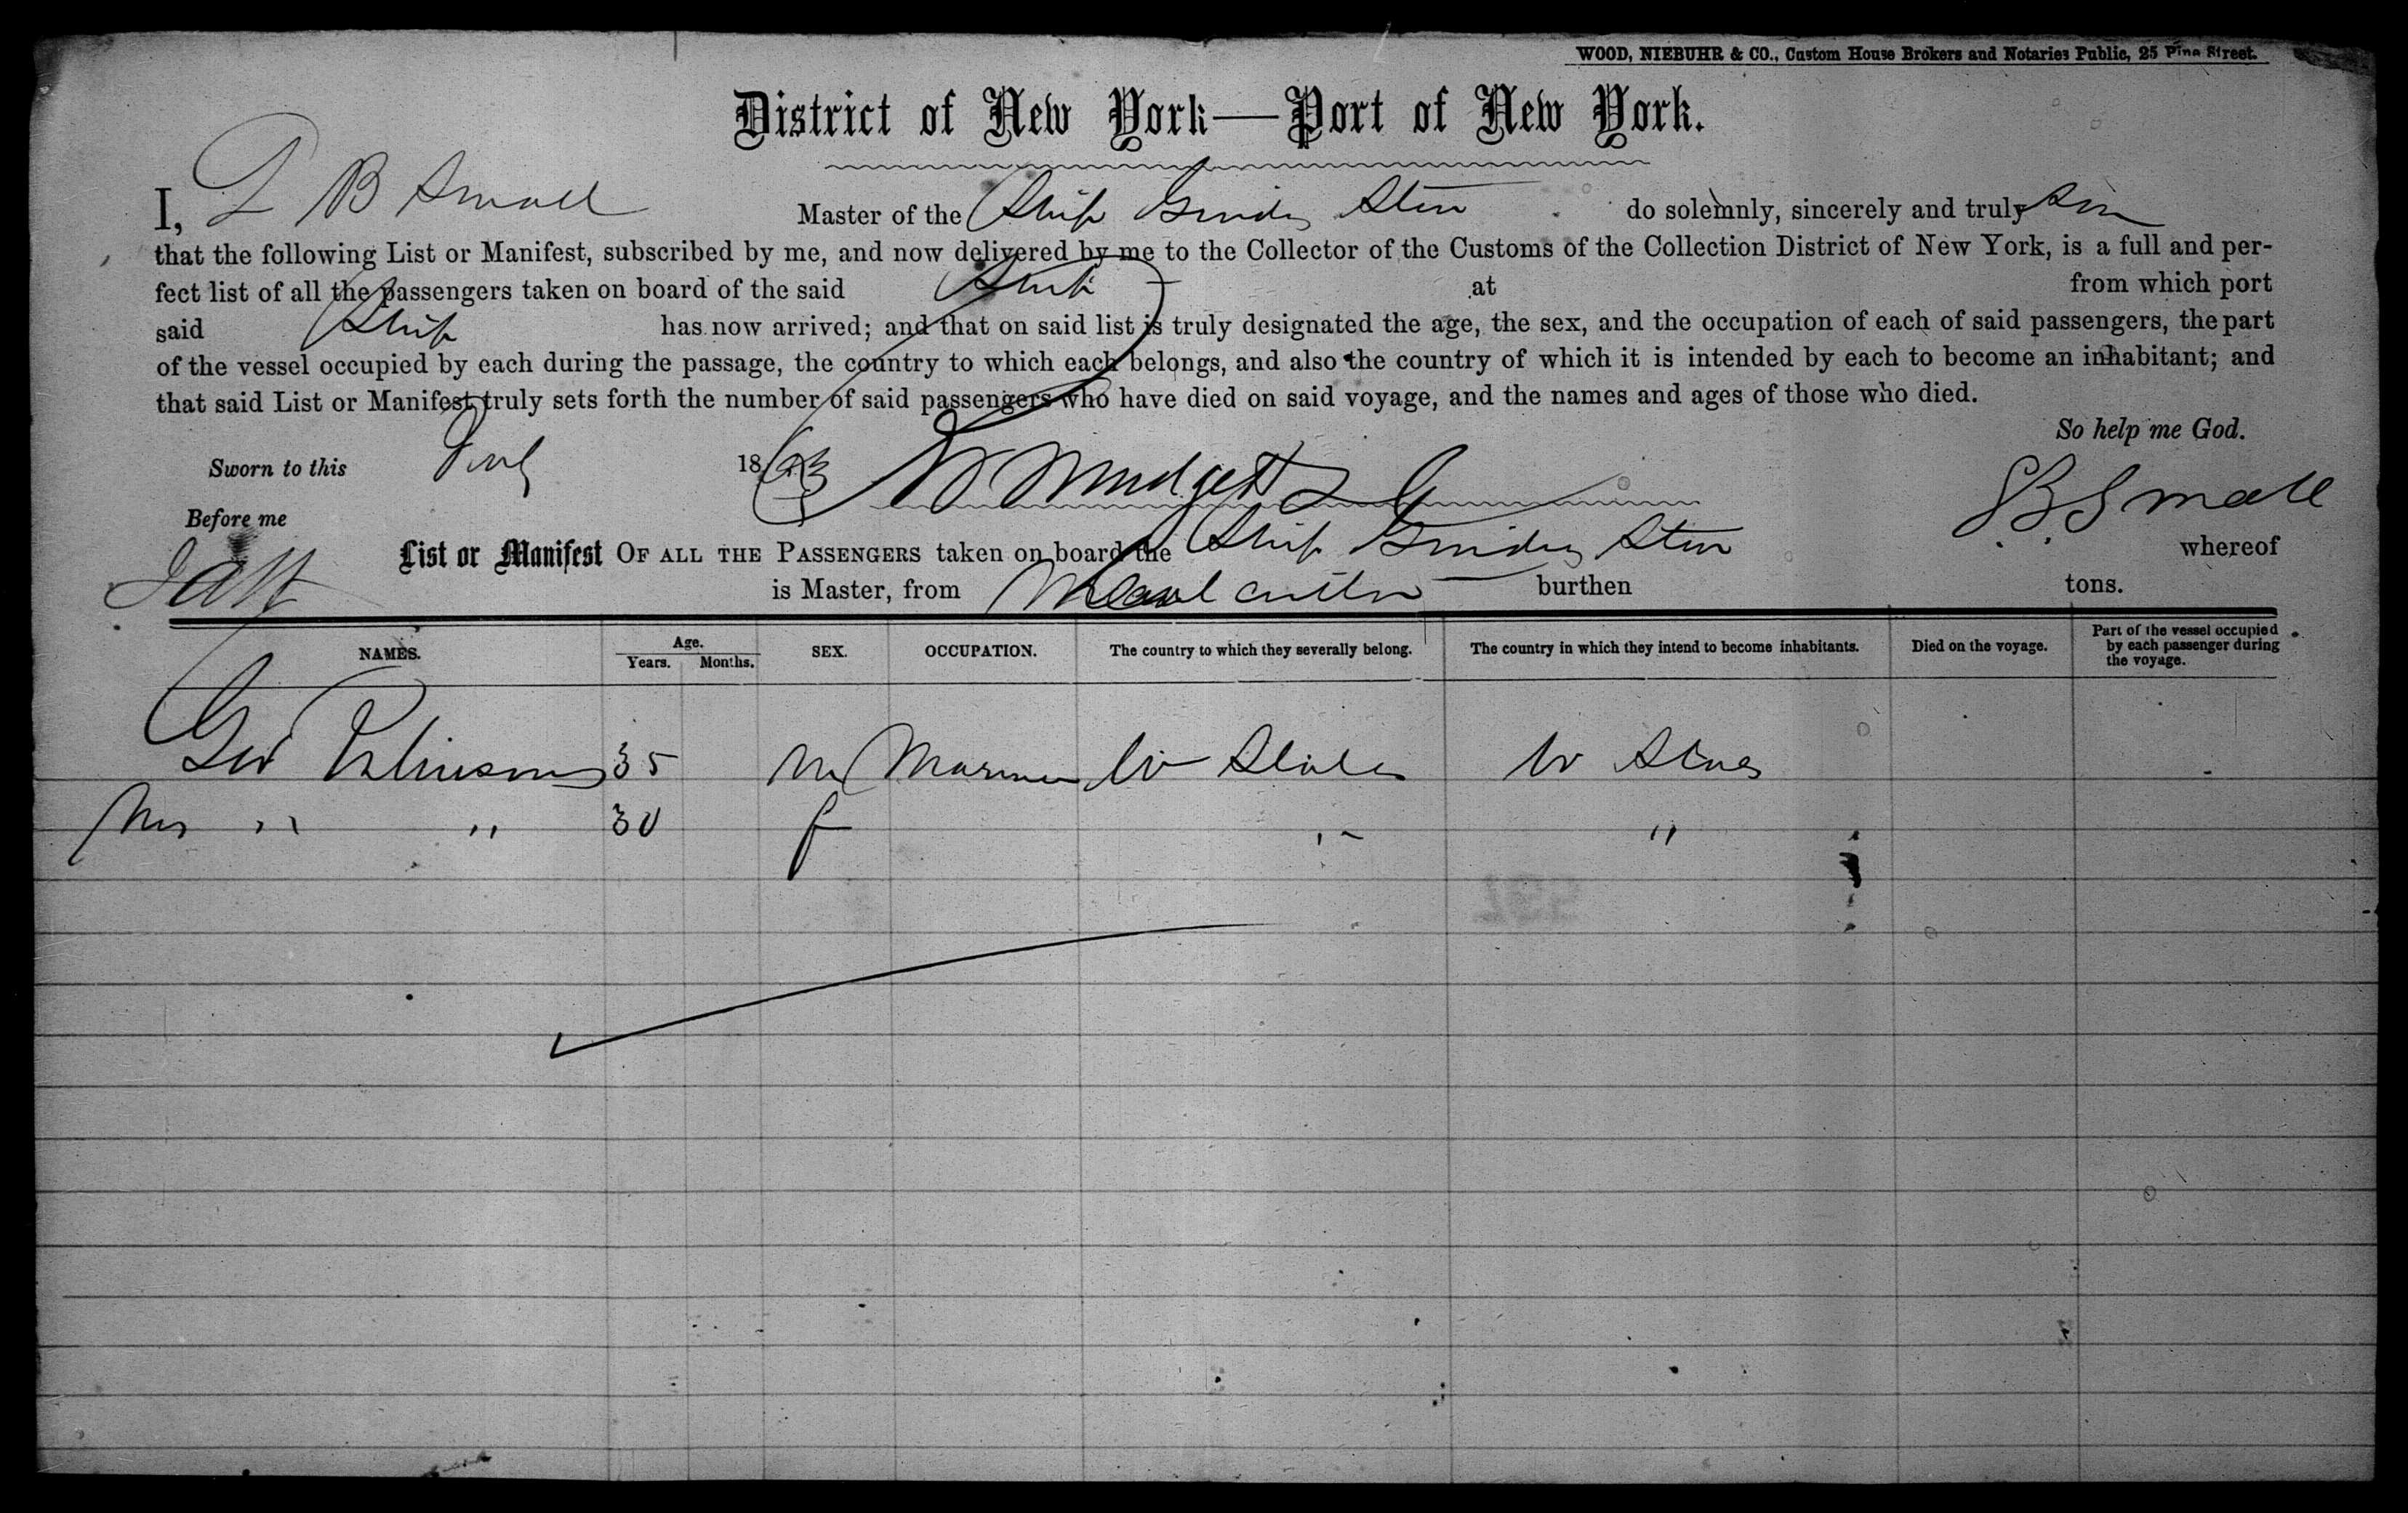 WOOD, NIEBUHR & CO., Custom House Brokers and Notaries Public, 25 Pine Street.
District of New York—Port of New York.
I, B Small Master of the Ship Guiding Star do solemnly, sincerely and truly
that the following List or Manifest, subscribed by me, and now delivered by me to the Collector of the Customs of the Collection District of New York, is a full and per-
fect list of all the passengers taken on board of the said Ship at from which port
said Ship has now arrived; and that on said list is truly designated the age, the sex, and the occupation of each of said passengers, the part
of the vessel occupied by each during the passage, the country to which each belongs, and also the country of which it is intended by each to become an inhabitant; and
that said List or Manifest truly sets forth the number of said passengers who have died on said voyage, and the names and ages of those who died.
So help me God.
Sworn to this 18
W Mudgett
B Small
Before me
List or Manifest OF ALL THE PASSENGERS taken on board the Ship Guiding Star whereof
is Master, from burthen tons.
NAMES. Age. Years. Months. SEX. OCCUPATION. The country to which they severally belong. The country in which they intend to become inhabitants. Died on the voyage. Part of the vessel occupied by each passenger during the voyage.
Geo 35 M Mariner U States U States
Mrs " " 30 f " "